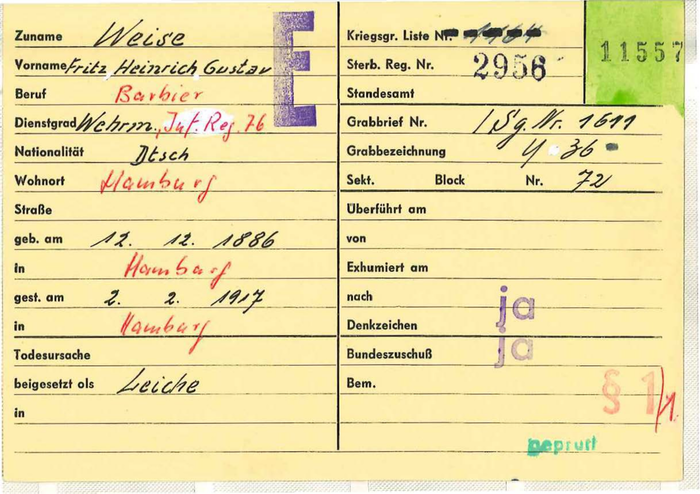 Zuname Weise
Vorname Fritz Heinrich Gustav
Beruf Barbier
Dienstgrad Wehrm., Inf. Reg. 76
Nationalität Dtsch
Wohnort Hamburg
Straße
geb. am 12. 12. 1886
in Hamburg
gest. am 2. 2. 1917
in Hamburg
Todesursache
beigesetzt als Leiche
in
E
Kriegsgr. Liste Nr.
Sterb. Reg. Nr. 2956
Standesamt
11557
Grabbrief Nr. / Sg. Nr. 1611
Grabbezeichnung Y 36
Sekt. Block Nr. 72
Überführt am
von
Exhumiert am
nach
Denkzeichen ja
Bundeszuschuß ja
Bem.
§ 1/1
geprüft